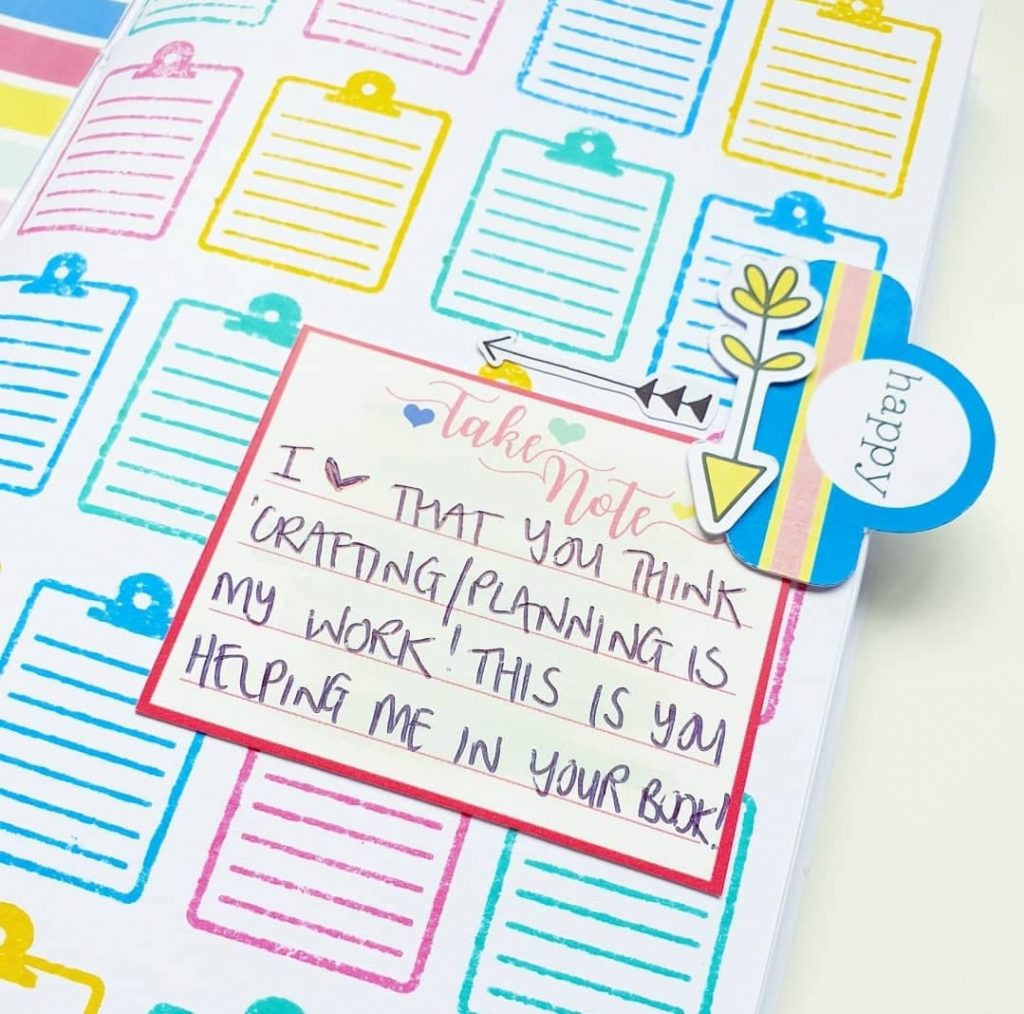 Take
Note
I ♥ THAT YOU THINK
'CRAFTING/PLANNING IS
MY WORK'! THIS IS YOU
HELPING ME IN YOUR BOOK!
happy